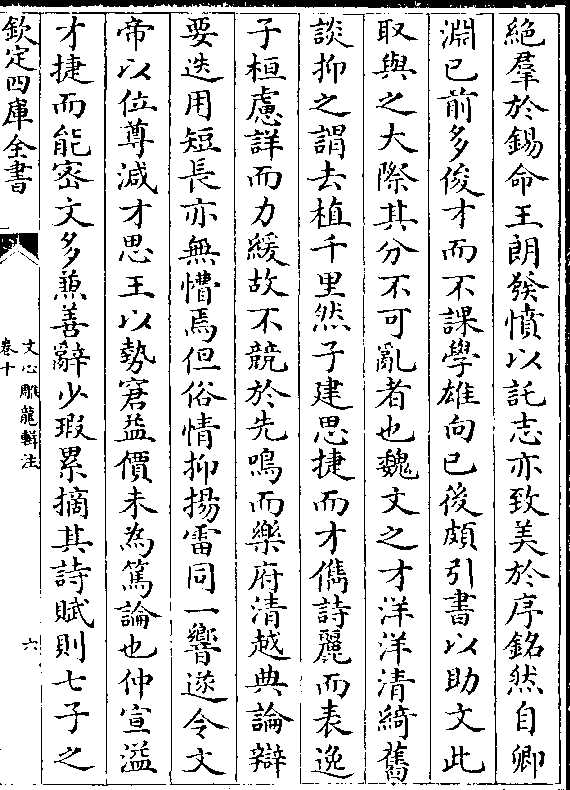 絶羣於錫命王朗發憤以託志亦致美於序銘然自卿
淵已前多俊才而不課學雄向已後頗引書以助文此
取與之大際其分不可亂者也魏文之才洋洋清綺舊
談抑之謂去植千里然子建思捷而才儁詩麗而表逸
子桓慮詳而力緩故不競於先鳴而樂府清越典論辯
要迭用短長亦無懵焉但俗情抑揚雷同一響遂令文
帝以位尊減才思王以勢窘益價未為篤論也仲宣溢
才捷而能密文多兼善辭少瑕累摘其詩賦則七子之
欽定四庫全書
文心雕龍輯注
卷十
六